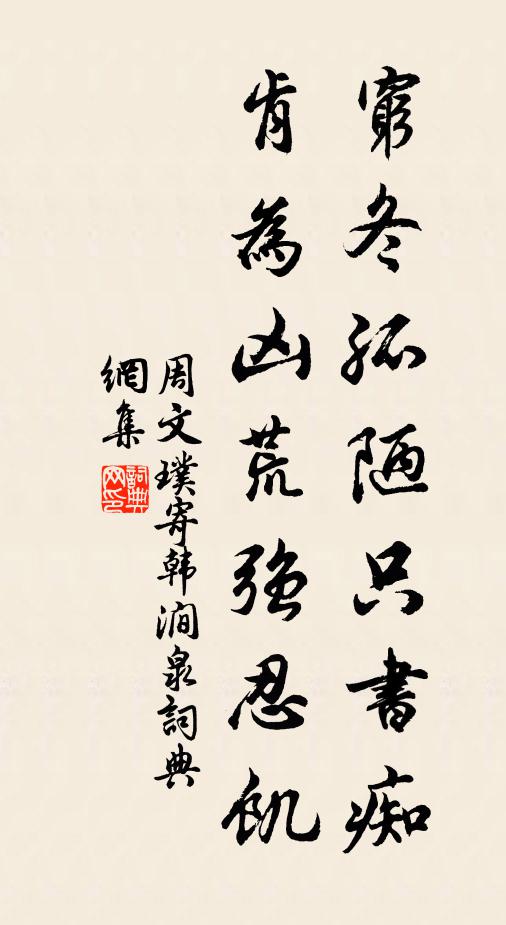 窮冬孤陋只書痴
肯為凶荒強忍飢
周文璞寄韩澗泉詞典
網集
詞典
网印